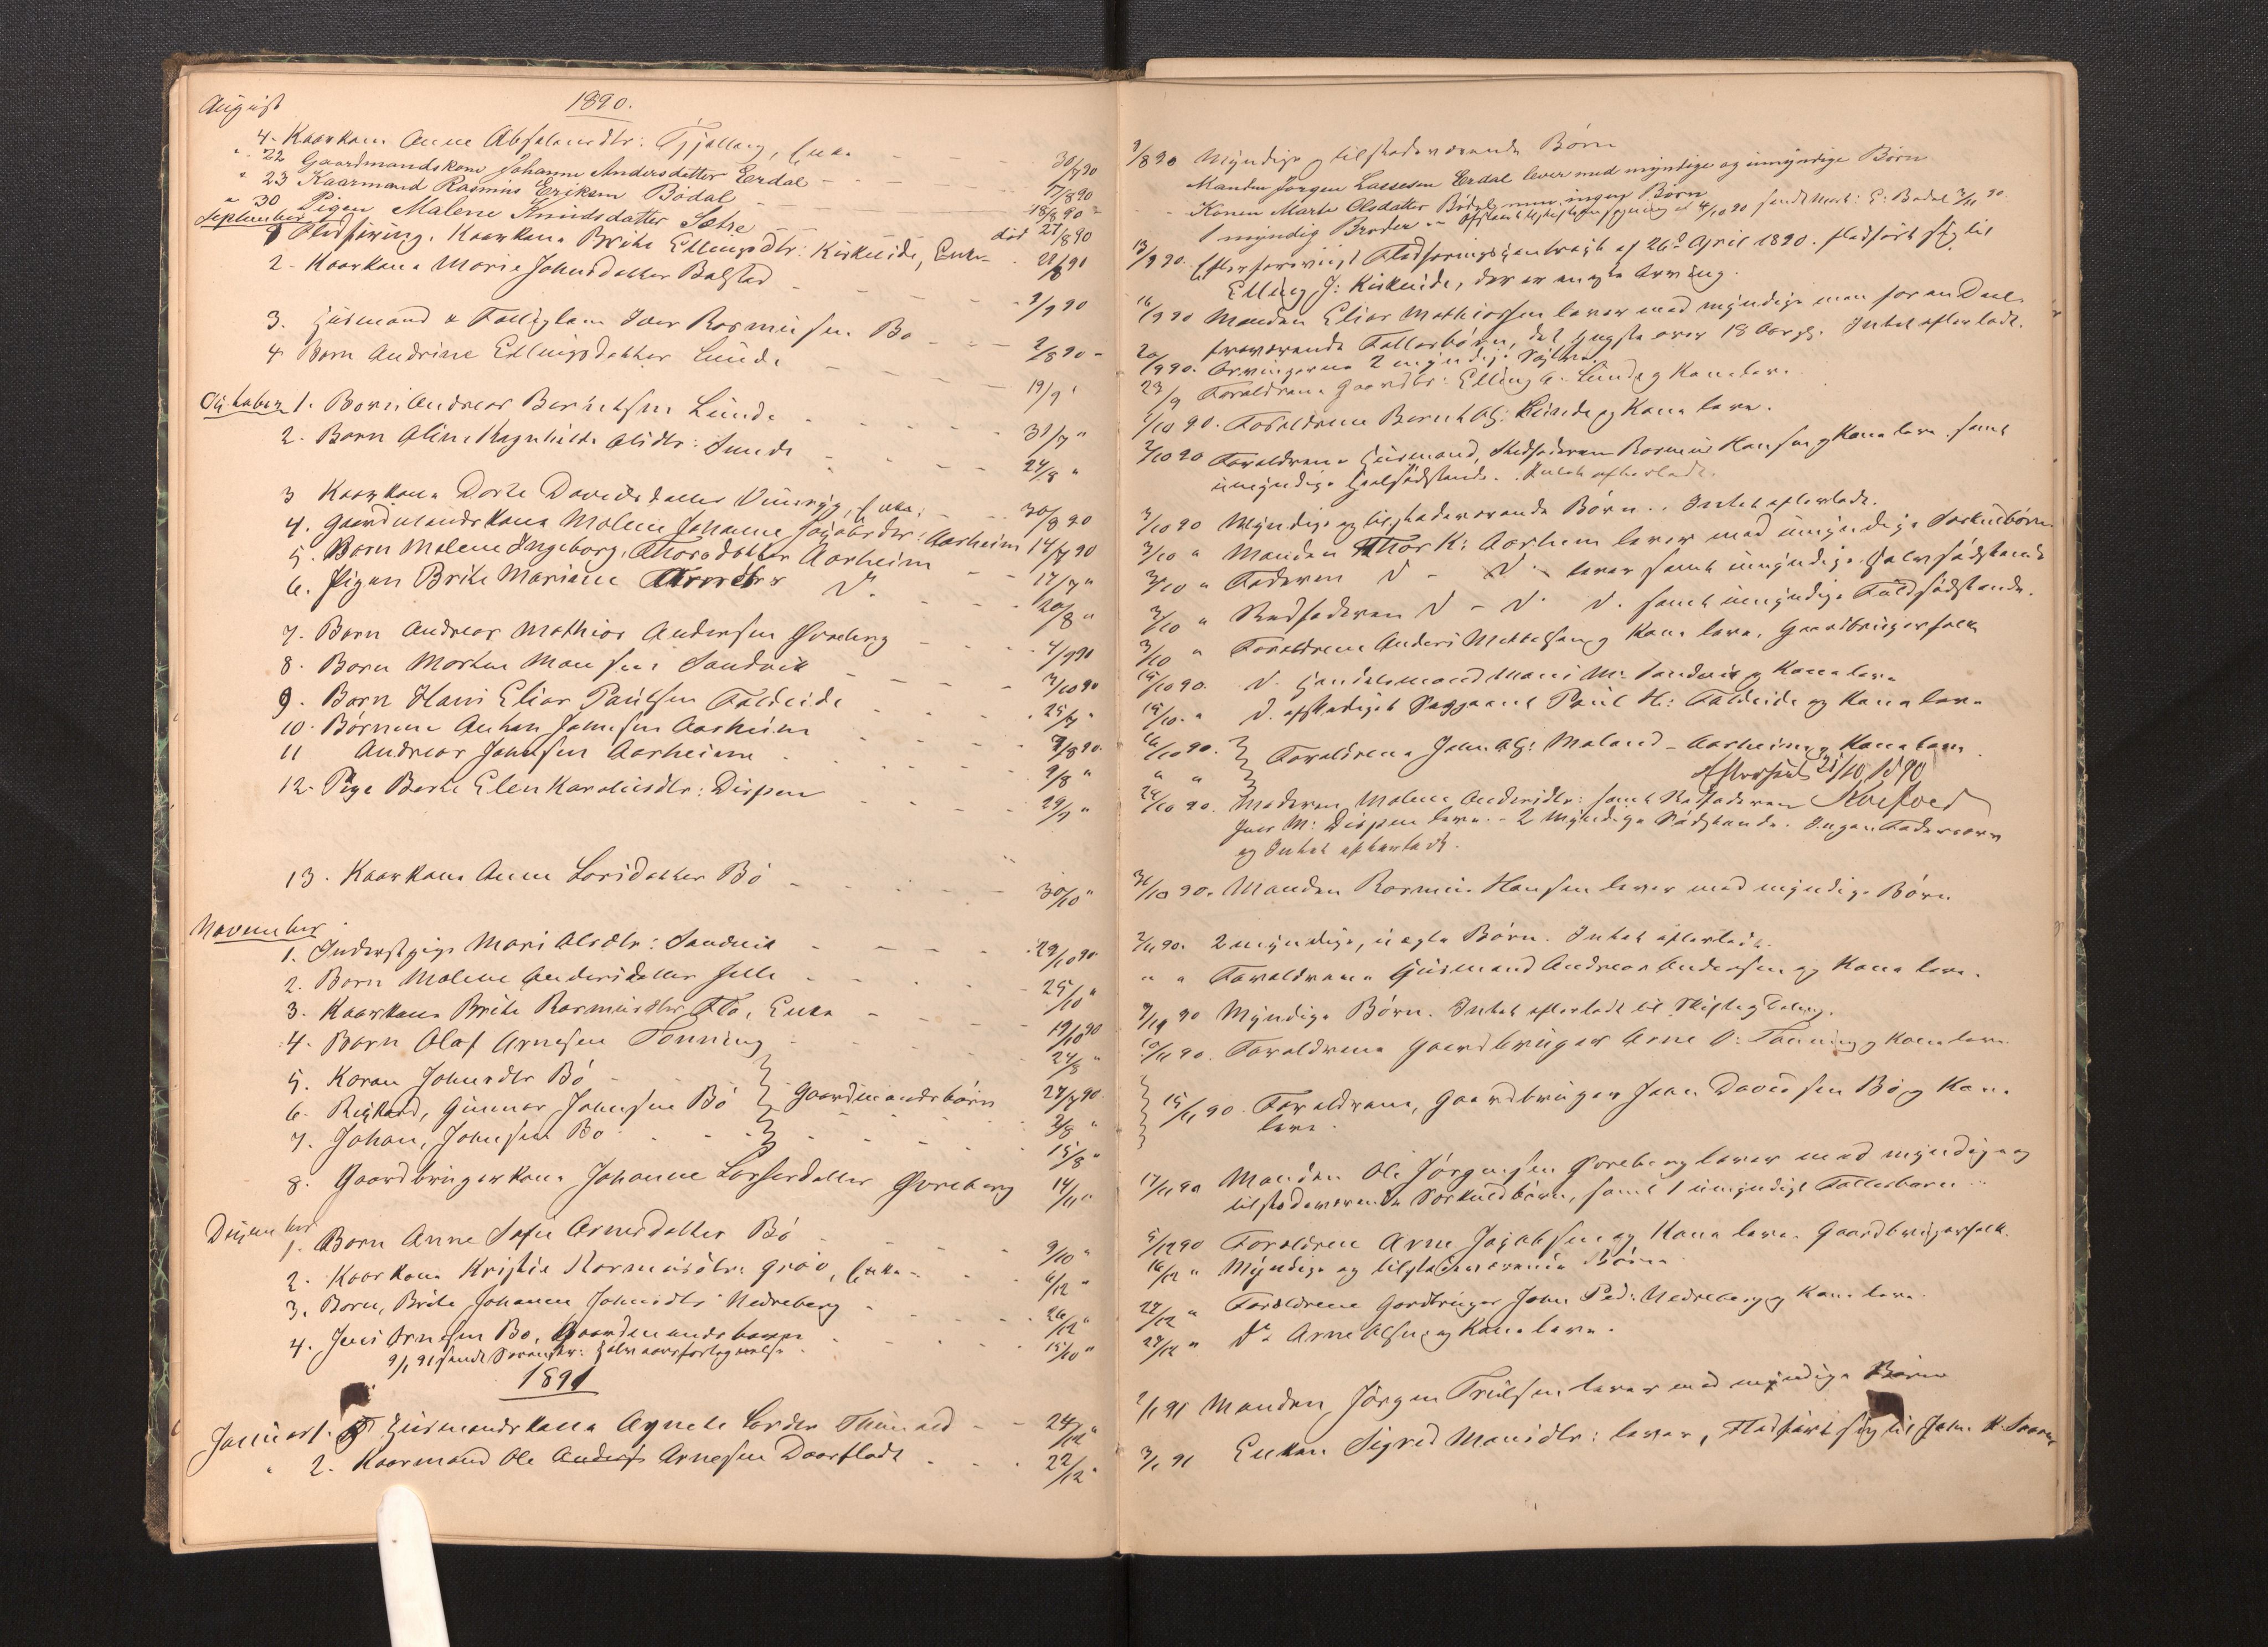 August
1890.
4. Kaarkone Anne Absalonsdtr: Tjellaug, Enke - - - 30/7 90
" 22 Gaardmandskone Johanne Andersdatter Erdal - - - 17/8 90
" 23 Kaarmand Rasmus Eriksen Bødal - - 18/8 90
" 30 Pigen Malene Knudsdatter Sætre død 27/8 90
September
1 Fledføring. Kaarkone Brite Ellingsdtr: Kirkeide, Enke - 28/8 90
2. Kaarkone Marie Johnsdatter Bolstad - - - 9/9 90
3. Husmand & Fattiglem Iver Rasmussen Bø - - - 2/8 90 -
4 Barn Andrine Ellingsdatter Lunde - - - 19/9 "
Oktober 1. Barn Andreas Berntsen Lunde - - - 31/7 "
2. Barn Oline Ragnhilda Olsdtr: Sunde - - - 24/8 "
3 Kaarkone Dorte Davidsdatter Vinsryg, Enke, - - 30/8 90
4. Gaardmandskone Malene Johanne Jacobsdtr: Aarheim 14/7 90
5. Barn Malene Ingeborg Thorsdatter Aarheim - - 17/7 "
6. Pigen Brite Mariane D. - - - 20/8 "
7. Barn Andreas Mathias Andersen Øvreberg - - - 4/9 90
8. Barn Morten Monsen Sandvik - - - 7/10 90
9. Barn Hans Elias Paulsen Faldeide - - - 25/7 "
10. Børnene Anton Johnsen Aarheim - - - 7/8 90.
11 Andreas Johnsen Aarheim - - - 9/8 "
12. Pige Berte Elen Karolusdtr: Dispen - - - 29/9 "
13. Kaarkone Anne Larsdatter Bø - - - 30/10 "
November
1. Inderstpige Mari Olsdtr: Sandvik - - - 29/10 90
2. Barn Malene Andersdatter Hille - - - 25/10 "
3. Kaarkone Brite Rasmusdtr Flo, Enke - - - 19/10 90
4. Barn Olaf Arnesen Tonning - - - 24/8 "
5. Karen Johnsdtr Bø - - 27/7 90
6. Rikard, Gunnar Johnsen Bø } Gaardmandsbørn 3/8 "
7. Johan, Johnsen Bø - - - 15/8 "
8. Gaardbrugerkone Johanne Lassesdatter Øvreberg 14/11 "
December
1. Barn Anne Sofie Arnesdatter Bø - - - 9/10 "
2. Kaarkone Kristie Rasmusdtr. Gröv, Enke - - - 6/12 "
3. Barn, Brite Johanne Johnsdtr Nedreberg - - - 26/12 "
4. Jens Arnesen Bø, Gaardmandsbarn - - - 15/10 "
9/1 91 sendt Sorenskr: Halvaarsfortegnelse.
1891
Januar 1. Husmandskone Agnete Larsdtr - - 24/12 "
" 2. Kaarmand Ole Anders Arnesen Daarflodt - - - 22/12 "
9/8 90 Myndige og tilstedeværende Børn
Manden Jørgen Lassesen Erdal lever med myndige og umyndige Børn
- Konen Marte Olsdatter Bødal men ingen Børn
1 myndig Broder
13/9 90. Efter forevist Fledføringscontrakt af 26de April 1890. fledført sig til
Elling J: Kirkeide, der er eneste Arving.
16/9 90 Manden Elias Mathiassen lever med myndige men for en Deel
fraværende Fællesbørn, det yngste over 18 Aar gl. Intet efterladt.
20/9 90. Arvingerne 2 myndige Søstre.
23/9 Forældrene Gaardbr: Elling A. Lunde og Kone lever
1/10 90. Forældrene Bernt Ol: Lunde og Kone leve.
2/10 90 Forældrene Husmand, Stedfaderen Rasmus Hansen og Kone leve samt
umyndige Halvsødskende. Intet efterladt.
3/10 90 Myndige og tilstedeværende Børn. Intet efterladt.
3/10 " Manden Thor K: Aarheim lever med umyndige Særkuldbørn.
3/10 " Faderen D - D. - lever samt umyndige Halvsødskende
3/10 " Stedfaderen D - D. D. samt umyndige Fuldsødskende.
3/10 " Forældrene Anders Mikkelsen og Kone leve. Gaardbrugerfolk
14/10 90. D. Handelsmand Mons M: Sandvik og Kone leve
15/10. " D. afskediget Sergeant Paul H: Faldeide og Kone leve
16/10 90. } Forældrene John Ol: Moland - Aarheim og Kone leve
" " Eftersseet 21/10 1890
24/10 90. Moderen Malene Andersdtr: samt Stedfaderen
Jens M: Dispen leve. - 2 myndige Sødskende. Ingen Fadersarv
og Intet efterladt.
31/10 90. Manden Rasmus Hansen lever med myndige Børn
2/11 90. 2 myndige, uægte Børn. Intet efterladt.
" " Forældrene Husmand Andreas Andersen og Kone leve.
7/11 90 Myndige Børn. Intet efterladt til Skifte og Deling.
10/11 90. Forældrene Gaardbruger Arne O: Tonning og Kone leve
15/11 90. Forældrene, Gaardbruger John Davidsen Bø og Kone
leve.
17/11 90 Manden Ole Jørgensen Øvreberg lever med myndige og
tilstedeværende Særkuldbørn, samt 1 umyndigt Fællesbarn
5/12 90 Forældrene Arne Jacobsen og Kone leve. Gaardbrugerfolk.
16/12 " Myndige og tilstedeværende Børn
27/12 " Forældrene Gardbruger John Ped: Nedreberg og Kone leve.
29/12 " Do Arne Olsen og Kone leve.
2/1 91 Manden, Jørgen Trulsen lever med myndige Børn
3/1 91 Enken Sigrid Monsdtr: lever, Fledført sig til John